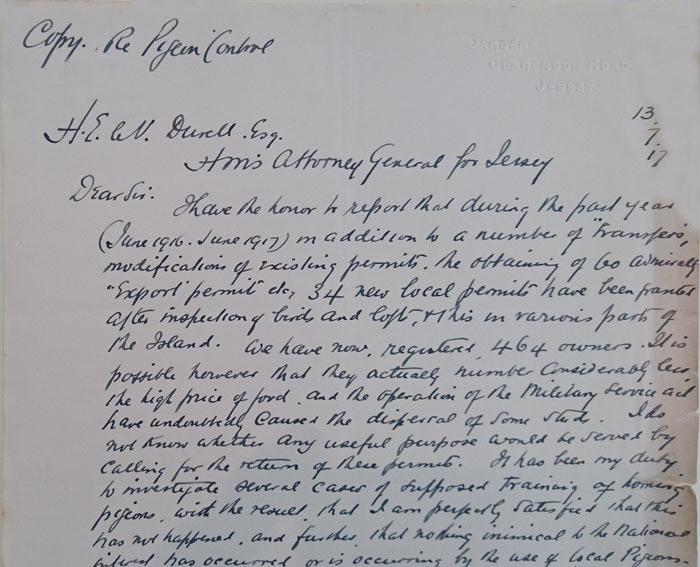 Copy. Re Pigeon Control
OAKDENE,
CLARENDON ROAD
JERSEY.
13.
7.
17
H. E. Le V. Durell. Esq.
H.M's Attorney General for Jersey
Dear Sir. I have the honor to report that during the past year
(June 1916. June 1917) in addition to a number of "Transfers",
modifications of existing permits, the obtaining of 60 Admiralty
"Export" permits etc, 34 new local permits have been granted
after inspection of birds and lofts, & this in various parts of
the Island. We have now, registered, 464 owners. It is
possible however that they actually number considerably less,
the high price of food, and the operation of the Military Service act
have undoubtedly caused the dispersal of some studs. I do
not know whether any useful purpose would be served by
calling for the return of these permits. It has been my duty
to investigate several cases of supposed training of homing
pigeons, with the result, that I am perfectly satisfied that this
has not happened, and further, that nothing inimical to the National
interest has occurred or is occurring by the use of local Pigeons.